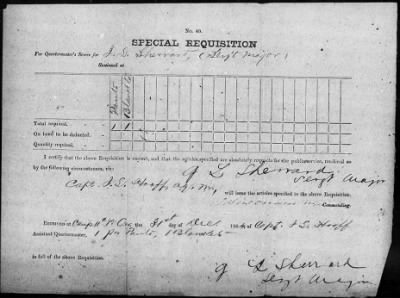 No. 40.
SPECIAL REQUISITION
For Quartermaster's Stores for J. L. Sherrard, (Sergt Major)
Stationed at
Pants
Blankets
Total required, 1 1
On hand to be deducted.
Quantity required.
I certify that the above Requisition is correct, and that the articles specified are absolutely requisite for the public service, rendered so
by the following circumstances, viz:
J L Sherrard,
Sergt Major
Capt. J. L. Hooff, a.q.m., will issue the articles specified in the above Requisition.
Commanding.
Received at Camp the 31st day of Dec of Capt. J L Hooff
Assistant Quartermaster, 1 pr Pants, 1 Blanket
in full of the above Requisition.
J L Sherrard
Sergt Major